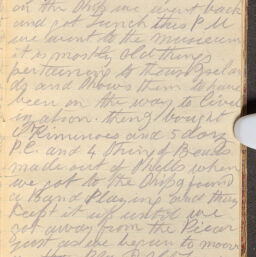 on the ship we went back
and got lunch this P.M
we went to the museum
it is mostly old things
pertaining to those
and shows them to have
been on the way to live
then bought
2 Kiminoes and 5 doz
P.C. and 4 String of Beads
made out of shells when
we got to the ship found
a Band Playing and they
Kept it up until we
got away from the Piear
just as we begun to moove